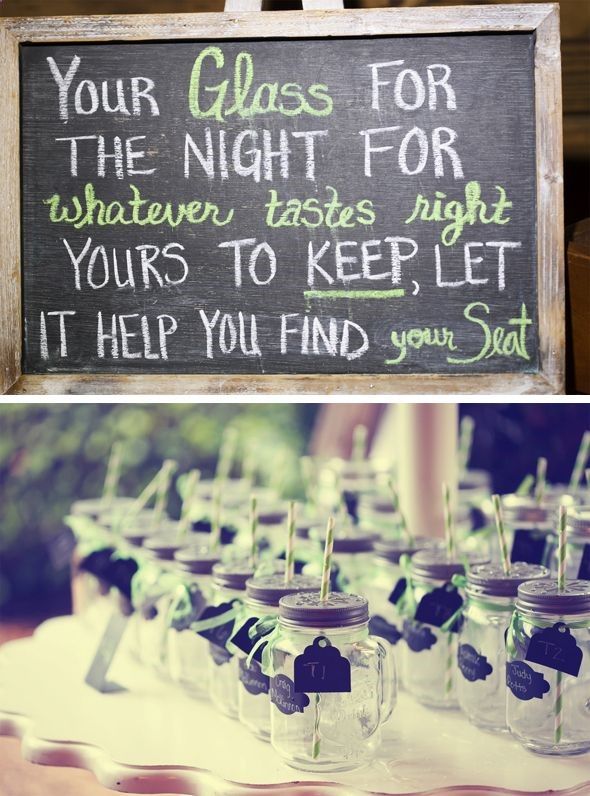 YOUR Glass FOR
THE NIGHT FOR
whatever tastes right
YOURS TO KEEP, LET
IT HELP YOU FIND your Seat
T1
Craig
T2
Judy